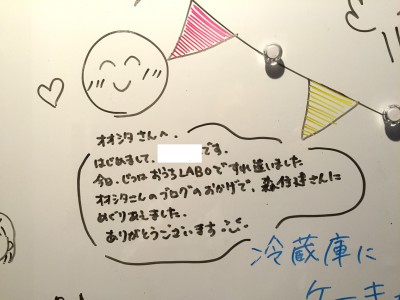 オオシタさんへ。
はじめまして、です。
今日、じつは おうちLABOで すれ違いました
オオシタさんのブログのおかげで、森住建さんに
めぐりあえました。
ありがとうございます
冷蔵庫に
ケーキ